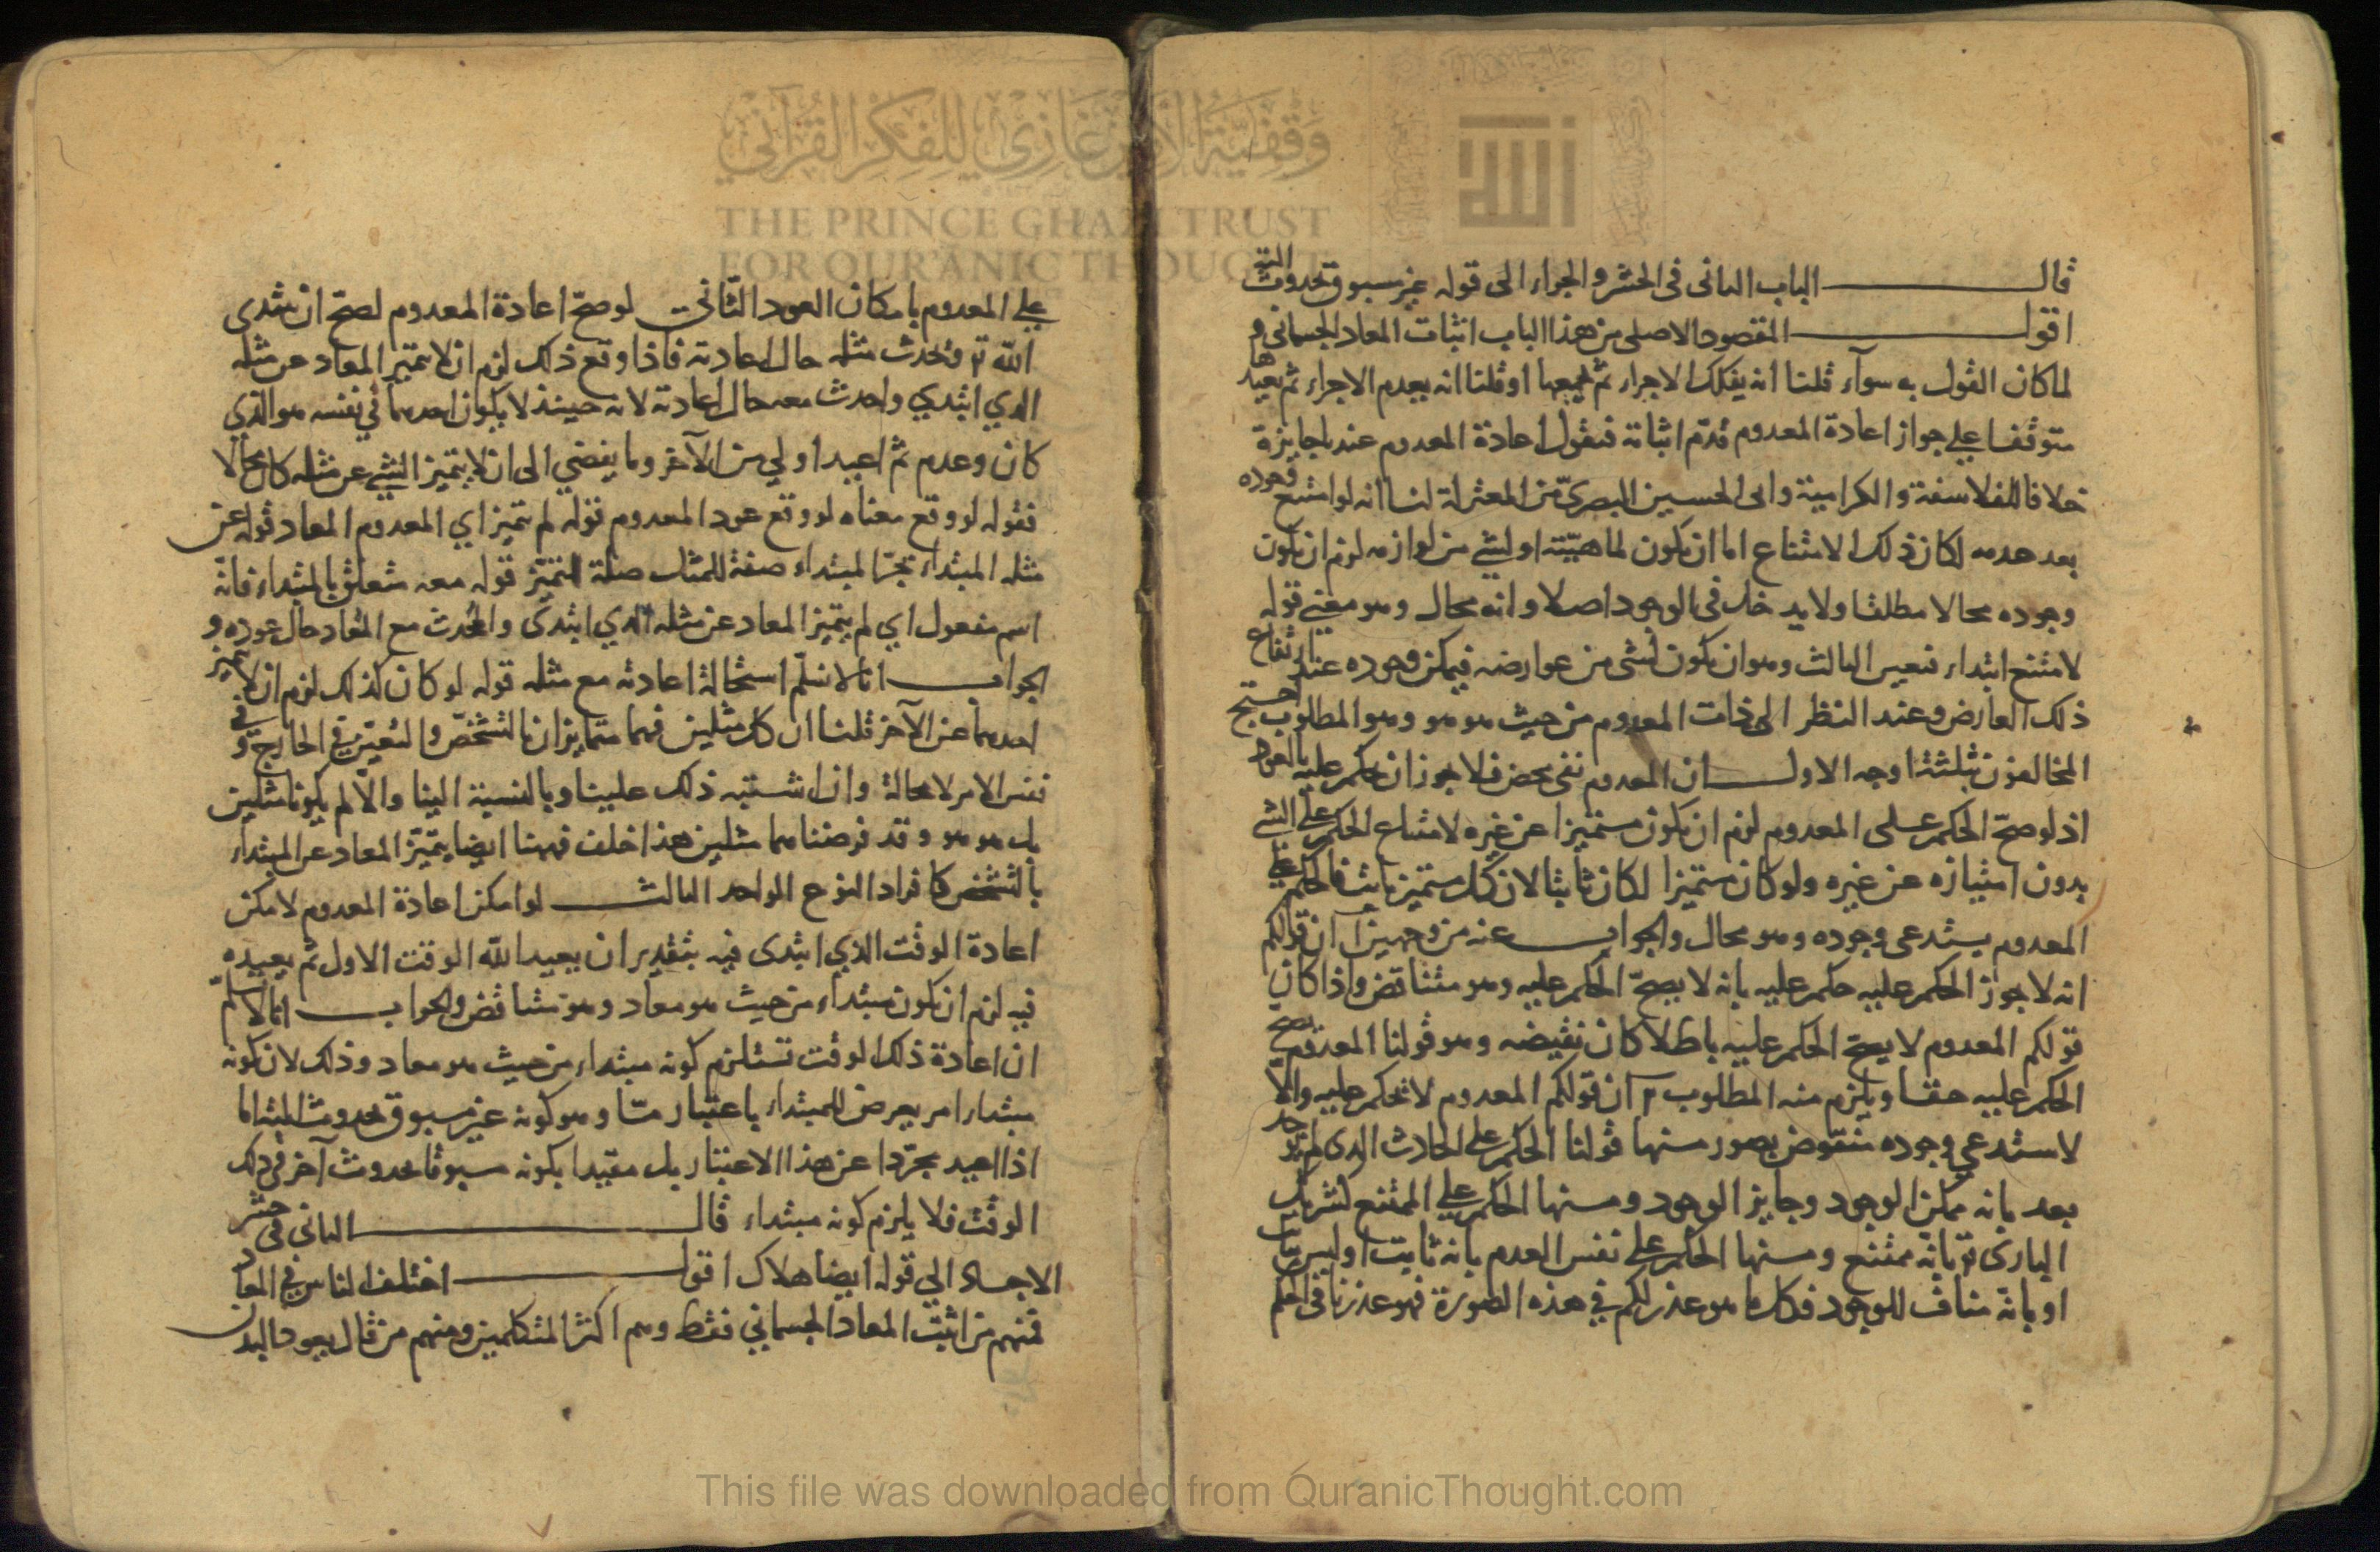 وقفية الأمير غازي للفكر القرآني
THE PRINCE GHAZI TRUST
FOR QURANIC THOUGHT
قال الباب الثانى فى الحشر والجزاء الى قوله غير مسبوق بحدوث البتة
اقول المقصود الاصلى من هذا الباب اثبات المعاد الجسمانى و
لما كان القول به سوآء قلنا انه يفكك الاجزاء ثم يجمعها او قلنا انه يعدم الاجزاء ثم يعيدها
متوقفا على جواز اعادة المعدوم قدّم اثباته فنقول اعادة المعدوم عندنا جايزة
خلافا للفلاسفة والكرامية وابى الحسين البصرىّ من المعتزلة لنا انه لو امتنع وجوده
بعد عدمه لكان ذلك الامتناع اما ان يكون لماهيّته او لشئ من لوازمه لزم ان يكون
وجوده محالا مطلقا ولا يدخل فى الوجود اصلا وانه محال وهو معنى قوله
لامتنع ابتداء فتعين الثالث وهو ان يكون لشى من عوارضه فيمكن وجوده عند ارتفاع
ذلك العارض وعند النظر الى ذات المعدوم من حيث هو هو وهو المطلوب احتج
المخالفون بثلثة اوجه الاول ان المعدوم نفى محض فلا يجوز ان يحكم عليه بالعود
اذ لو صحّ الحكم على المعدوم لزم ان يكون متميزا عن غيره لامتناع الحكم على الشئ
بدون امتيازه عن غيره ولو كان متميزا لكان ثابتا لان كل متميز ثابت فالحكم على
المعدوم يستدعى وجوده وهو محال والجواب عنه من وجهين آ ان قولكم
انه لا يجوز الحكم عليه حكم عليه بانه لا يصحّ الحكم عليه وهو متناقض واذا كان
قولكم المعدوم لا يصح الحكم عليه باطلا كان نقيضه وهو قولنا المعدوم يصح
الحكم عليه حقا ويلزم منه المطلوب ب ان قولكم المعدوم لا يحكم عليه والا
لاستدعى وجوده منقوض بصور منها قولنا الحكم على الحادث الذى لم يوجد
بعد بانه ممكن الوجود وجايز الوجود ومنها الحكم على الممتنع كشريك
البارى تع بانه ممتنع ومنها الحكم على نفس العدم بانه ثابت او ليس بثابت
او بانه مناف للوجود فكل ما هو عذركم في هذه الصورة فهو عذرنا فى الحكم
على المعدوم بامكان العود الثانى لو صحّ اعادة المعدوم لصحّ ان يبتدى
الله تع ويحدث مثله حال اعادته فاذا وقع ذلك لزم ان لا يتميز المعاد عن مثله
الذي ابتدي واحدث معه حال اعادته لانه حينئذ لا يكون احدهما في نفسه هو الذي
كان وعدم ثم اعيد اولى من الآخر وما يفضي الى ان لا يتميز الشئ عن مثله كان محالا
فقوله لو وقع معناه لو وقع عود المعدوم قوله لم يتميز اي المعدوم المعاد قوله عن
مثله المبتداء بجرّ المبتداء صفة للمثل صلة لتميّز قوله معه متعلق بالمبتداء فانّه
اسم مفعول اي لم يتميز المعاد عن مثله الذي ابتدى واحدث مع المعاد حال عوده و
الجواب انا لا نسلّم استحالة اعادته مع مثله قوله لو كان كذلك لزم ان لا يتميز
احدهما عن الآخر قلنا ان كل مثلين فهما متمايزان بالتشخّص والتعيّن في الخارج وفي
نفس الامر لا محالة وان اشتبه ذلك علينا وبالنسبة الينا والّا لم يكونا مثلين
بل هو هو وقد فرضناهما مثلين هذا خلف فههنا ايضا يتميّز المعاد عن المبتداء
بالتشخص كافراد النوع الواحد الثالث لو امكن اعادة المعدوم لامكن
اعادة الوقت الذي ابتدى فيه بتقدير ان يعيد الله الوقت الاول ثم يعيده
فيه لزم ان يكون مبتداء من حيث هو معاد وهو متناقض والجواب انا لا نسلّم
ان اعادة ذلك الوقت تستلزم كونه مبتداء من حيث هو معاد وذلك لان كونه
مبتداء امر يعرض للمبتداء باعتبار مّا وهو كونه غير مسبوق بحدوث البتة اما
اذا اعيد مجرّدا عن هذا الاعتبار بل مقيدا بكونه مسبوقا بحدوث آخر في ذلك
الوقت فلا يلزم كونه مبتداء قال الثانى فى حشر
الاجساد الي قوله ايضا هلاك اقول اختلف الناس في المعاد
فمنهم من اثبت المعاد الجسماني فقط وهم اكثر المتكلمين ومنهم من قال بعود البدن
This file was downloaded from QuranicThought.com